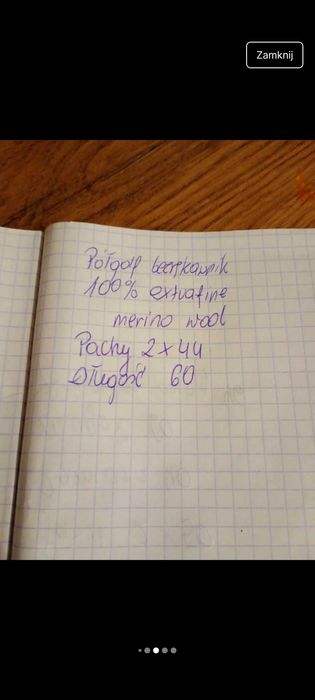 Zamknij
Półgolf bezrękawnik
100% extrafine
merino wool
Pachy 2 x 44
Długość 60